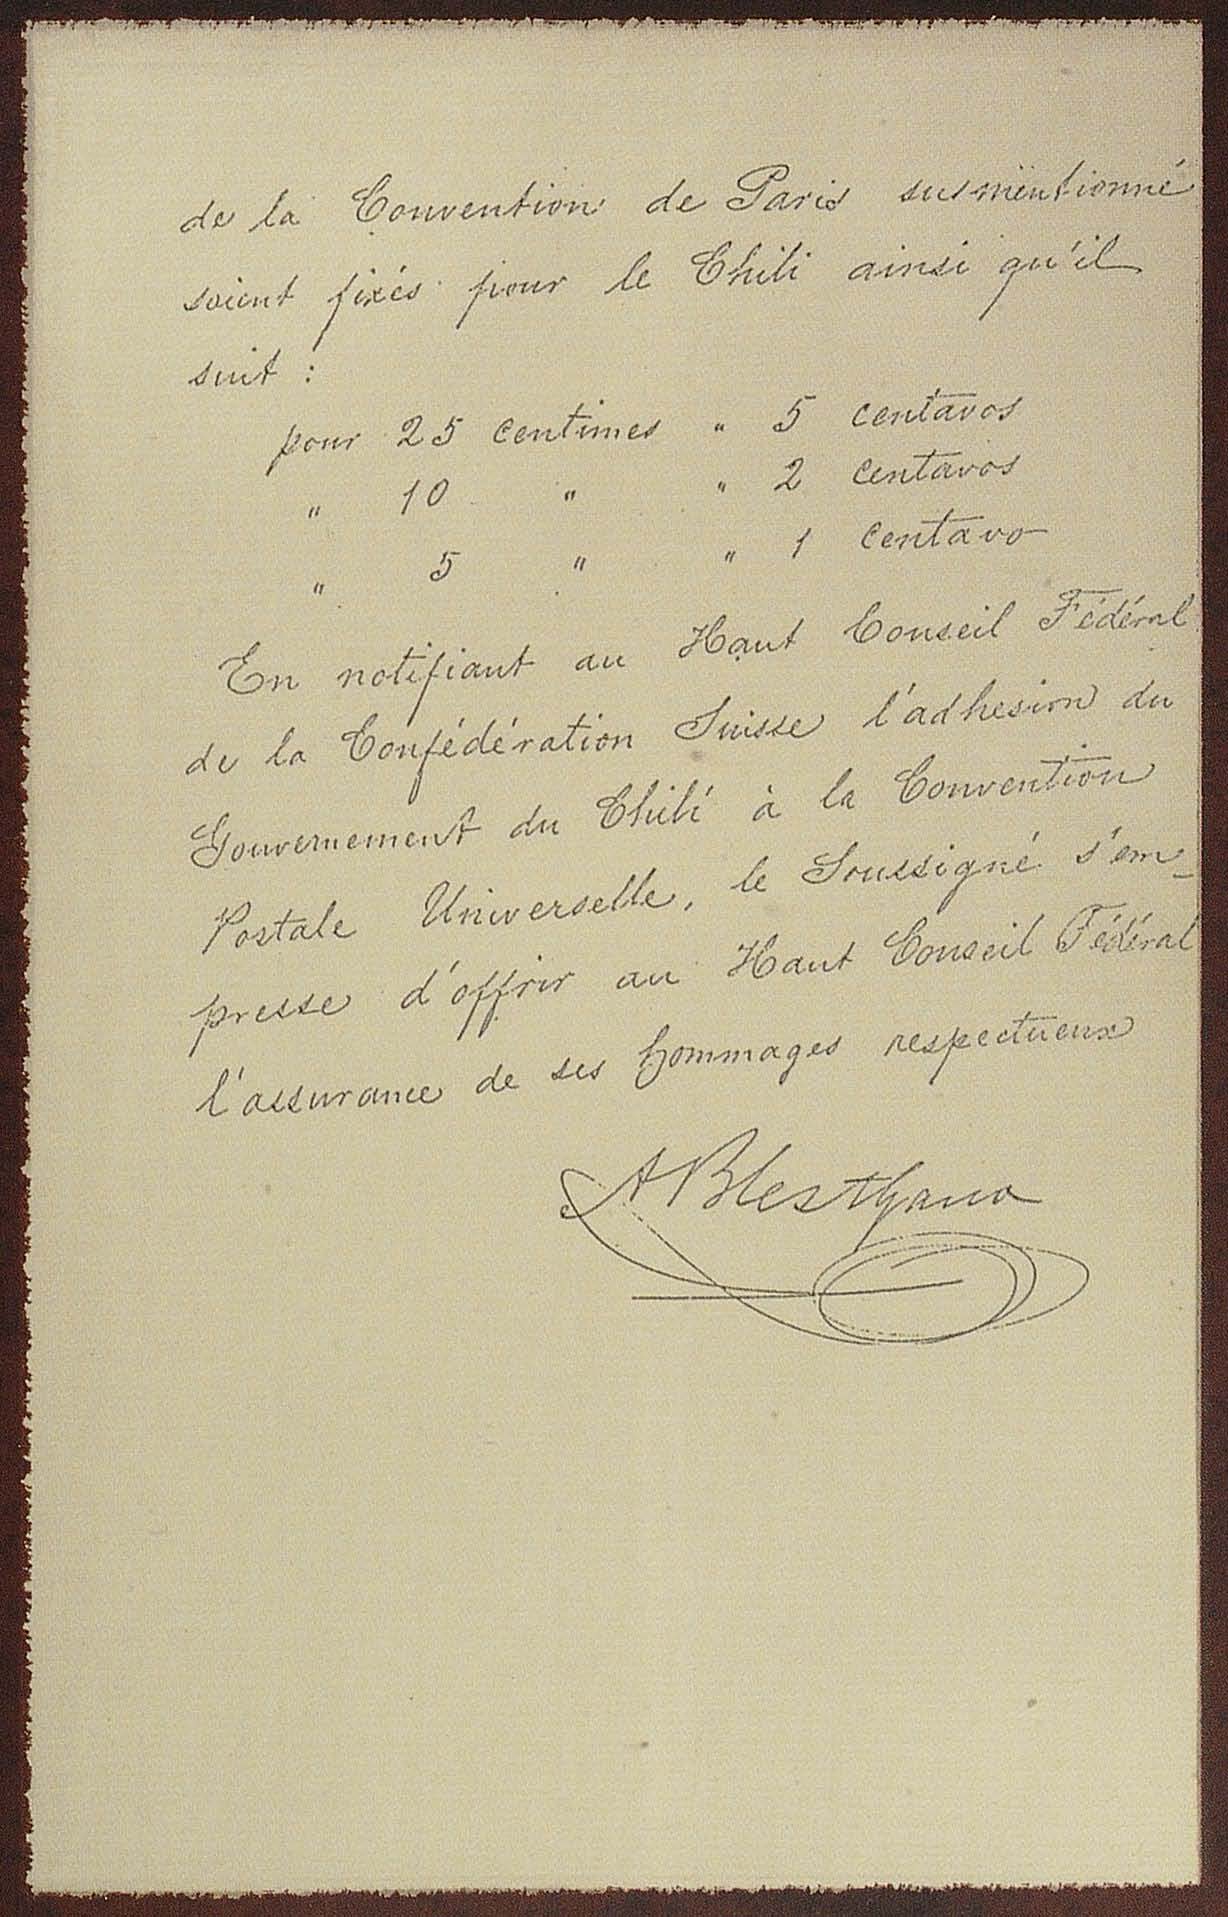 de la Convention de Paris susmentionné
soient fixés pour le Chili ainsi qu'il
suit :
pour 25 centimes " 5 centavos
" 10 " " 2 centavos
" 5 " " 1 centavo
En notifiant au Haut Conseil Fédéral
de la Confédération Suisse l'adhesion du
Gouvernement du Chili à la Convention
Postale Universelle, le Soussigné s'em-
presse d'offrir au Haut Conseil Fédéral
l'assurance de ses hommages respectueux
A Blest Gana